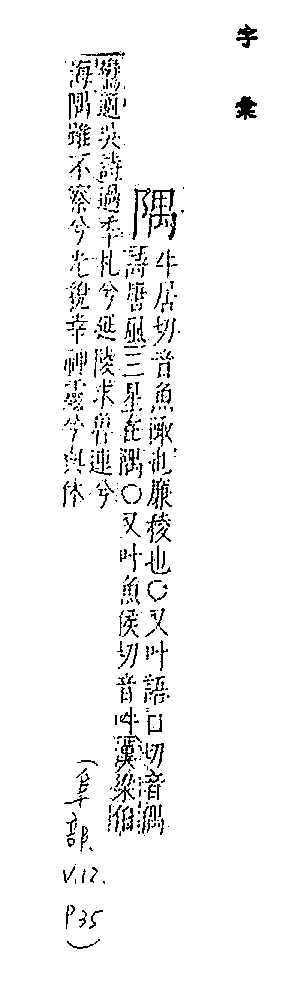 字彙
隅
牛居切音魚陬也廉稜也○又叶語口切音偶
詩唐風三星在隅○又叶魚侯切音牛漢梁伯
鸞適吳詩過季札兮延陵求魯連兮
海隅雖不察兮光貌幸神靈兮與休
(阜部.
V.12.
P35)